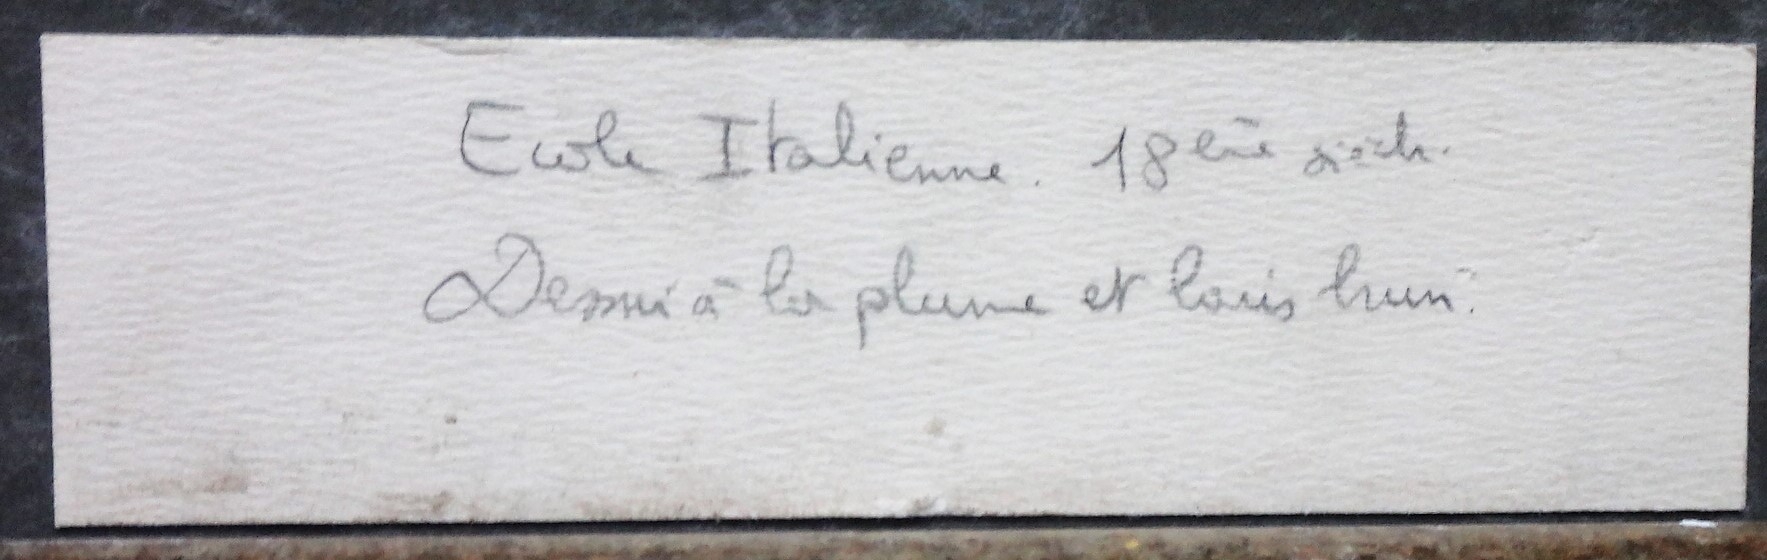 Ecole Italienne. 18ème siècle.
Dessin à la plume et lavis brun.